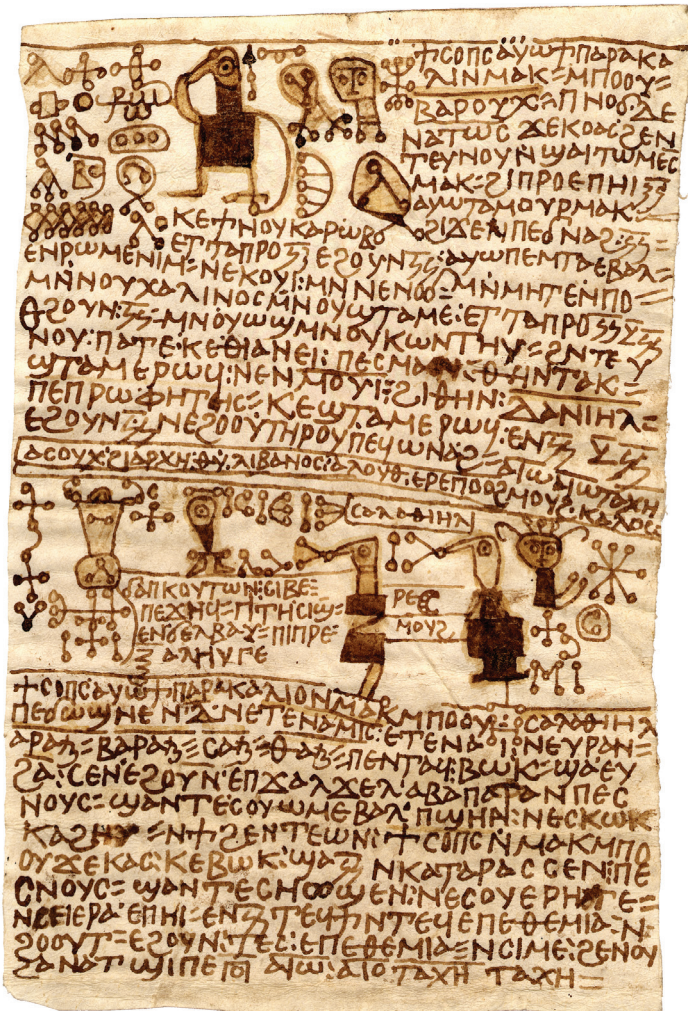 ϮⲤⲞⲠⲤⲀⲨⲰϮⲠⲀⲢⲀⲔⲀ
ⲖⲒⲚⲘⲀⲔ=ⲘⲠⲞⲞⲨ=
ⲂⲀⲢⲞⲨⲬ:ⲠⲚⲞϬ:ⲆⲈ
ⲚⲀⲦⲰⲤ ϪⲈⲔⲞⲀⲤ:ϨⲈⲚ
ⲦⲈⲨⲚⲞⲨⲚϢⲀⲒⲦⲰⲘⲈⲤ
ⲘⲀⲔ=ϨⲒⲠⲢⲞⲈⲠⲎⲒ
ⲀⲨⲰⲦⲀⲘⲞⲨⲢⲘⲀⲔ=
ⲔⲈϮⲚⲞⲨⲔⲀⲢⲰⲂ
ⲈⲦⲦⲀⲠⲢⲞ ⲈϨⲞⲨⲚ :ⲀⲨⲰⲠⲈⲘⲦⲀⲈⲂⲀⲖ=
ⲈⲚⲢⲰⲘⲈⲚⲒⲘ=ⲚⲈⲔⲞⲨⲒ:ⲘⲚⲚⲈⲚⲞϬ=ⲘⲚⲘⲎⲦⲈⲚⲠⲞ
ⲘⲚⲚⲞⲨⲬⲀⲖⲒⲚⲞⲤⲘⲚⲞⲨϢⲦⲀⲘⲈ:ⲈⲦⲦⲀⲠⲢⲞ
ⲈϨⲞⲨⲚ: =ⲘⲚⲞⲨⲰϢⲘⲚⲞⲨⲔⲰⲚⲦⲎⲨ=ϨⲚⲦⲈⲨ
ⲚⲞⲨ:ⲠⲀⲦⲈ:ⲔⲈⲐⲒⲀⲚⲈⲒ:ⲠⲈⲤⲘⲀ
ϢⲦⲀⲘⲈⲢⲰϤ:ⲚⲈⲚⲘⲞⲨⲒ=ϨⲒⲐⲎⲚ:ⲆⲀⲚⲒⲎⲖ=
ⲠⲈⲠⲢⲰⲪⲎⲦⲎⲤ=ⲔⲈϢⲦⲀⲘⲈⲢⲰϤ:ⲈⲚ
ⲈϨⲞⲨⲚ ⲚⲈϨⲞⲞⲨⲦⲎⲢⲞⲨⲠⲈϤⲰⲚⲀϨ=ⲀⲒⲰ
ⲀⲤⲞⲨⲬ:ϨⲒⲀⲢⲬⲎ:ⲐⲨ:ⲖⲒⲂⲀⲚⲞⲤ:ⲀⲖⲞⲨⲐ:ⲈⲢⲈⲠⲞⲞϨⲘⲞⲨϨ:ⲔⲀⲖⲞⲤ
ⲤⲀⲖⲀⲐⲒⲎⲖ
ϬⲀⲠⲔⲞⲨⲦⲰⲚ:ⲤⲒⲂⲈ=
ⲠⲈⲬⲎⲤ=ⲠⲒⲦⲎⲤⲒⲰ=
ⲈⲚϬⲈⲖⲂⲀⲨ=ⲠⲒⲠⲢⲈ=
ⲀⲖⲎⲨⲄⲈ
ⲢⲈ
ⲘⲞⲨϨ
ϮⲤⲞⲠⲤⲀⲨⲰϮⲠⲀⲢⲀⲔⲀⲖⲒⲞⲚⲘⲀⲔⲘⲠⲞⲞⲨ:ⲤⲀⲖⲀⲐⲒⲎⲖ
ⲠⲈϬⲰϢⲚⲈⲚⲈⲦⲈⲚⲀⲘⲒⲤ:ⲈⲦⲈⲚⲀϬⲒ:ⲚⲈⲨⲢⲀⲚ=
ⲀⲢⲀⲌ=ⲂⲀⲢⲀⲌ=ⲤⲀⲌ=ⲐⲀⲌ=ⲠⲈⲚⲦⲀϤ:ⲂⲰⲔ=ϢⲀⲈⲨ
ϨⲀ:ⲤⲈⲚⲈϨⲞⲨⲚⲈⲠϪⲀⲖϪⲈⲖ:ⲀⲂⲀⲠⲀⲦⲀⲚⲠⲈⲤ
ⲚⲞⲨⲤ=ϢⲀⲚⲦⲈⲤⲞⲨⲰⲘⲈⲂⲀⲖ:ⲠϢⲎⲚ:ⲚⲈⲤⲔⲰⲔ
ⲔⲀϨⲎⲨ=ⲚϮϨⲈⲚⲦⲈⲰⲚ:ϮⲤⲞⲠⲤⲚⲘⲀⲔⲘⲠⲞ
ⲞⲨϪⲈⲔⲀⲤ:ⲔⲈⲂⲰⲔ:ϢⲀ ⲚⲔⲀⲦⲀⲢⲀⲤⲤⲈⲚ:ⲠⲈ
ⲤⲚⲞⲨⲤ=ϢⲀⲚⲦⲈⲤ ⲚⲈⲤⲞⲨⲈⲢⲎⲦⲈ=
ⲚⲤⲈⲒⲈⲢⲀ:ⲈⲠⲎⲒ=ⲈⲚ ⲦⲈϤⲎⲚⲦⲈϤⲈⲠⲈⲐⲈⲘⲒⲀ:Ⲛ=
ϨⲞⲞⲨⲦ=ⲈϨⲞⲨⲚ:ⲦⲈⲤ:ⲈⲠⲈⲐⲈⲘⲒⲀ=ⲚⲤⲒⲘⲈ:ϨⲈⲚⲞⲨ
ϨⲀⲚⲀⲦϢⲒⲠⲈ ⲀⲒⲰ:ⲀⲒⲞ:ⲦⲀⲬⲎ ⲦⲀⲬⲎ=